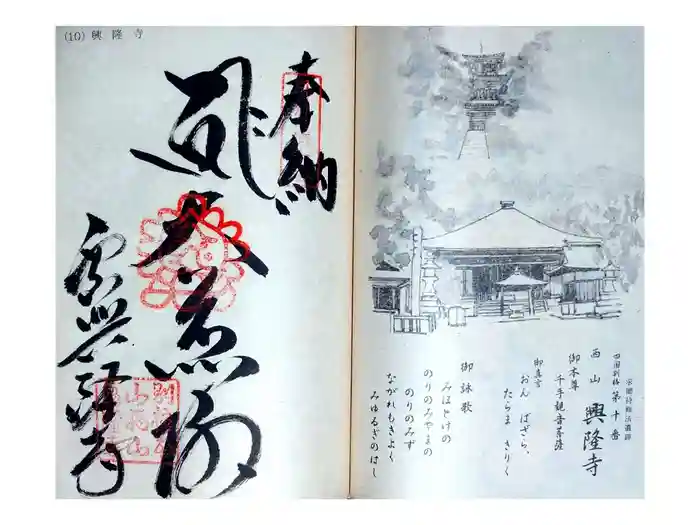 (10) 興隆寺
奉納
大悲殿
宗国時勅法遺跡
四国別格 第十番
西山 興隆寺
御本尊
千手観音菩薩
御真言
おん ばざら、
たらま きりく
御詠歌
みほとけの
のりのみやまの
のりのみず
ながれもきよく
みゆるぎのはし